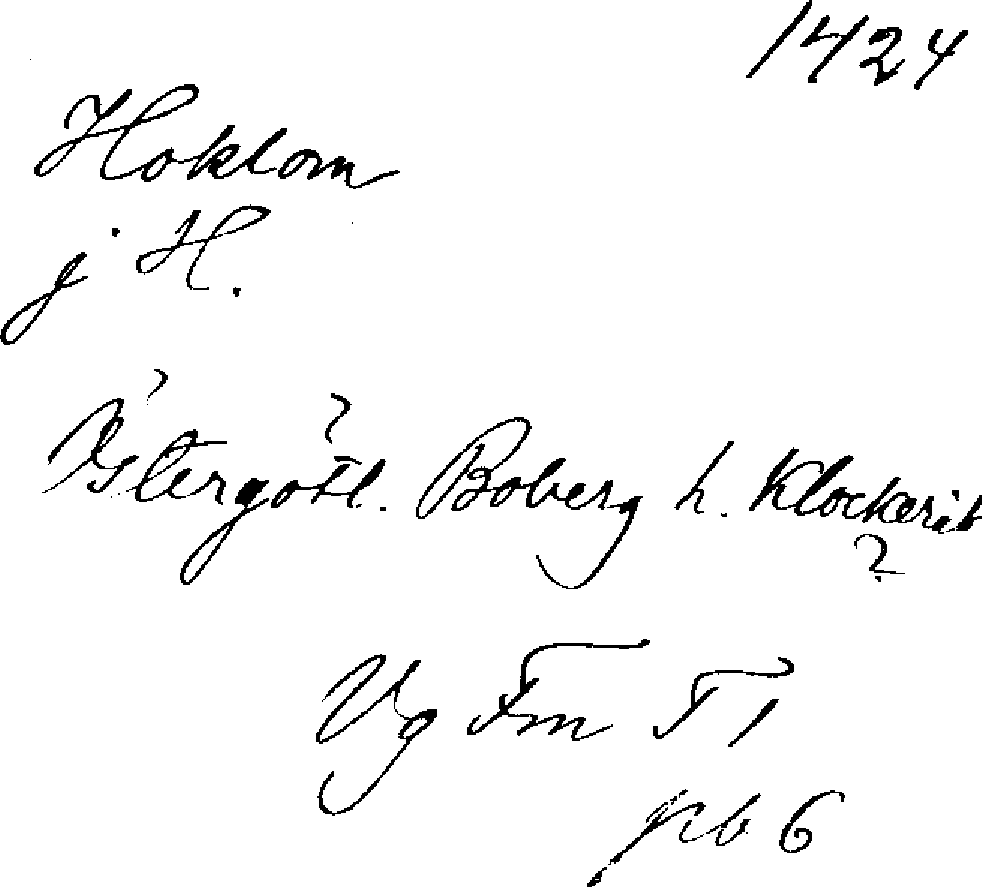 1424
Hoklom
j H.
Östergötl. Boberg h. Klockerik
?
Vg Fm T1
pb 6